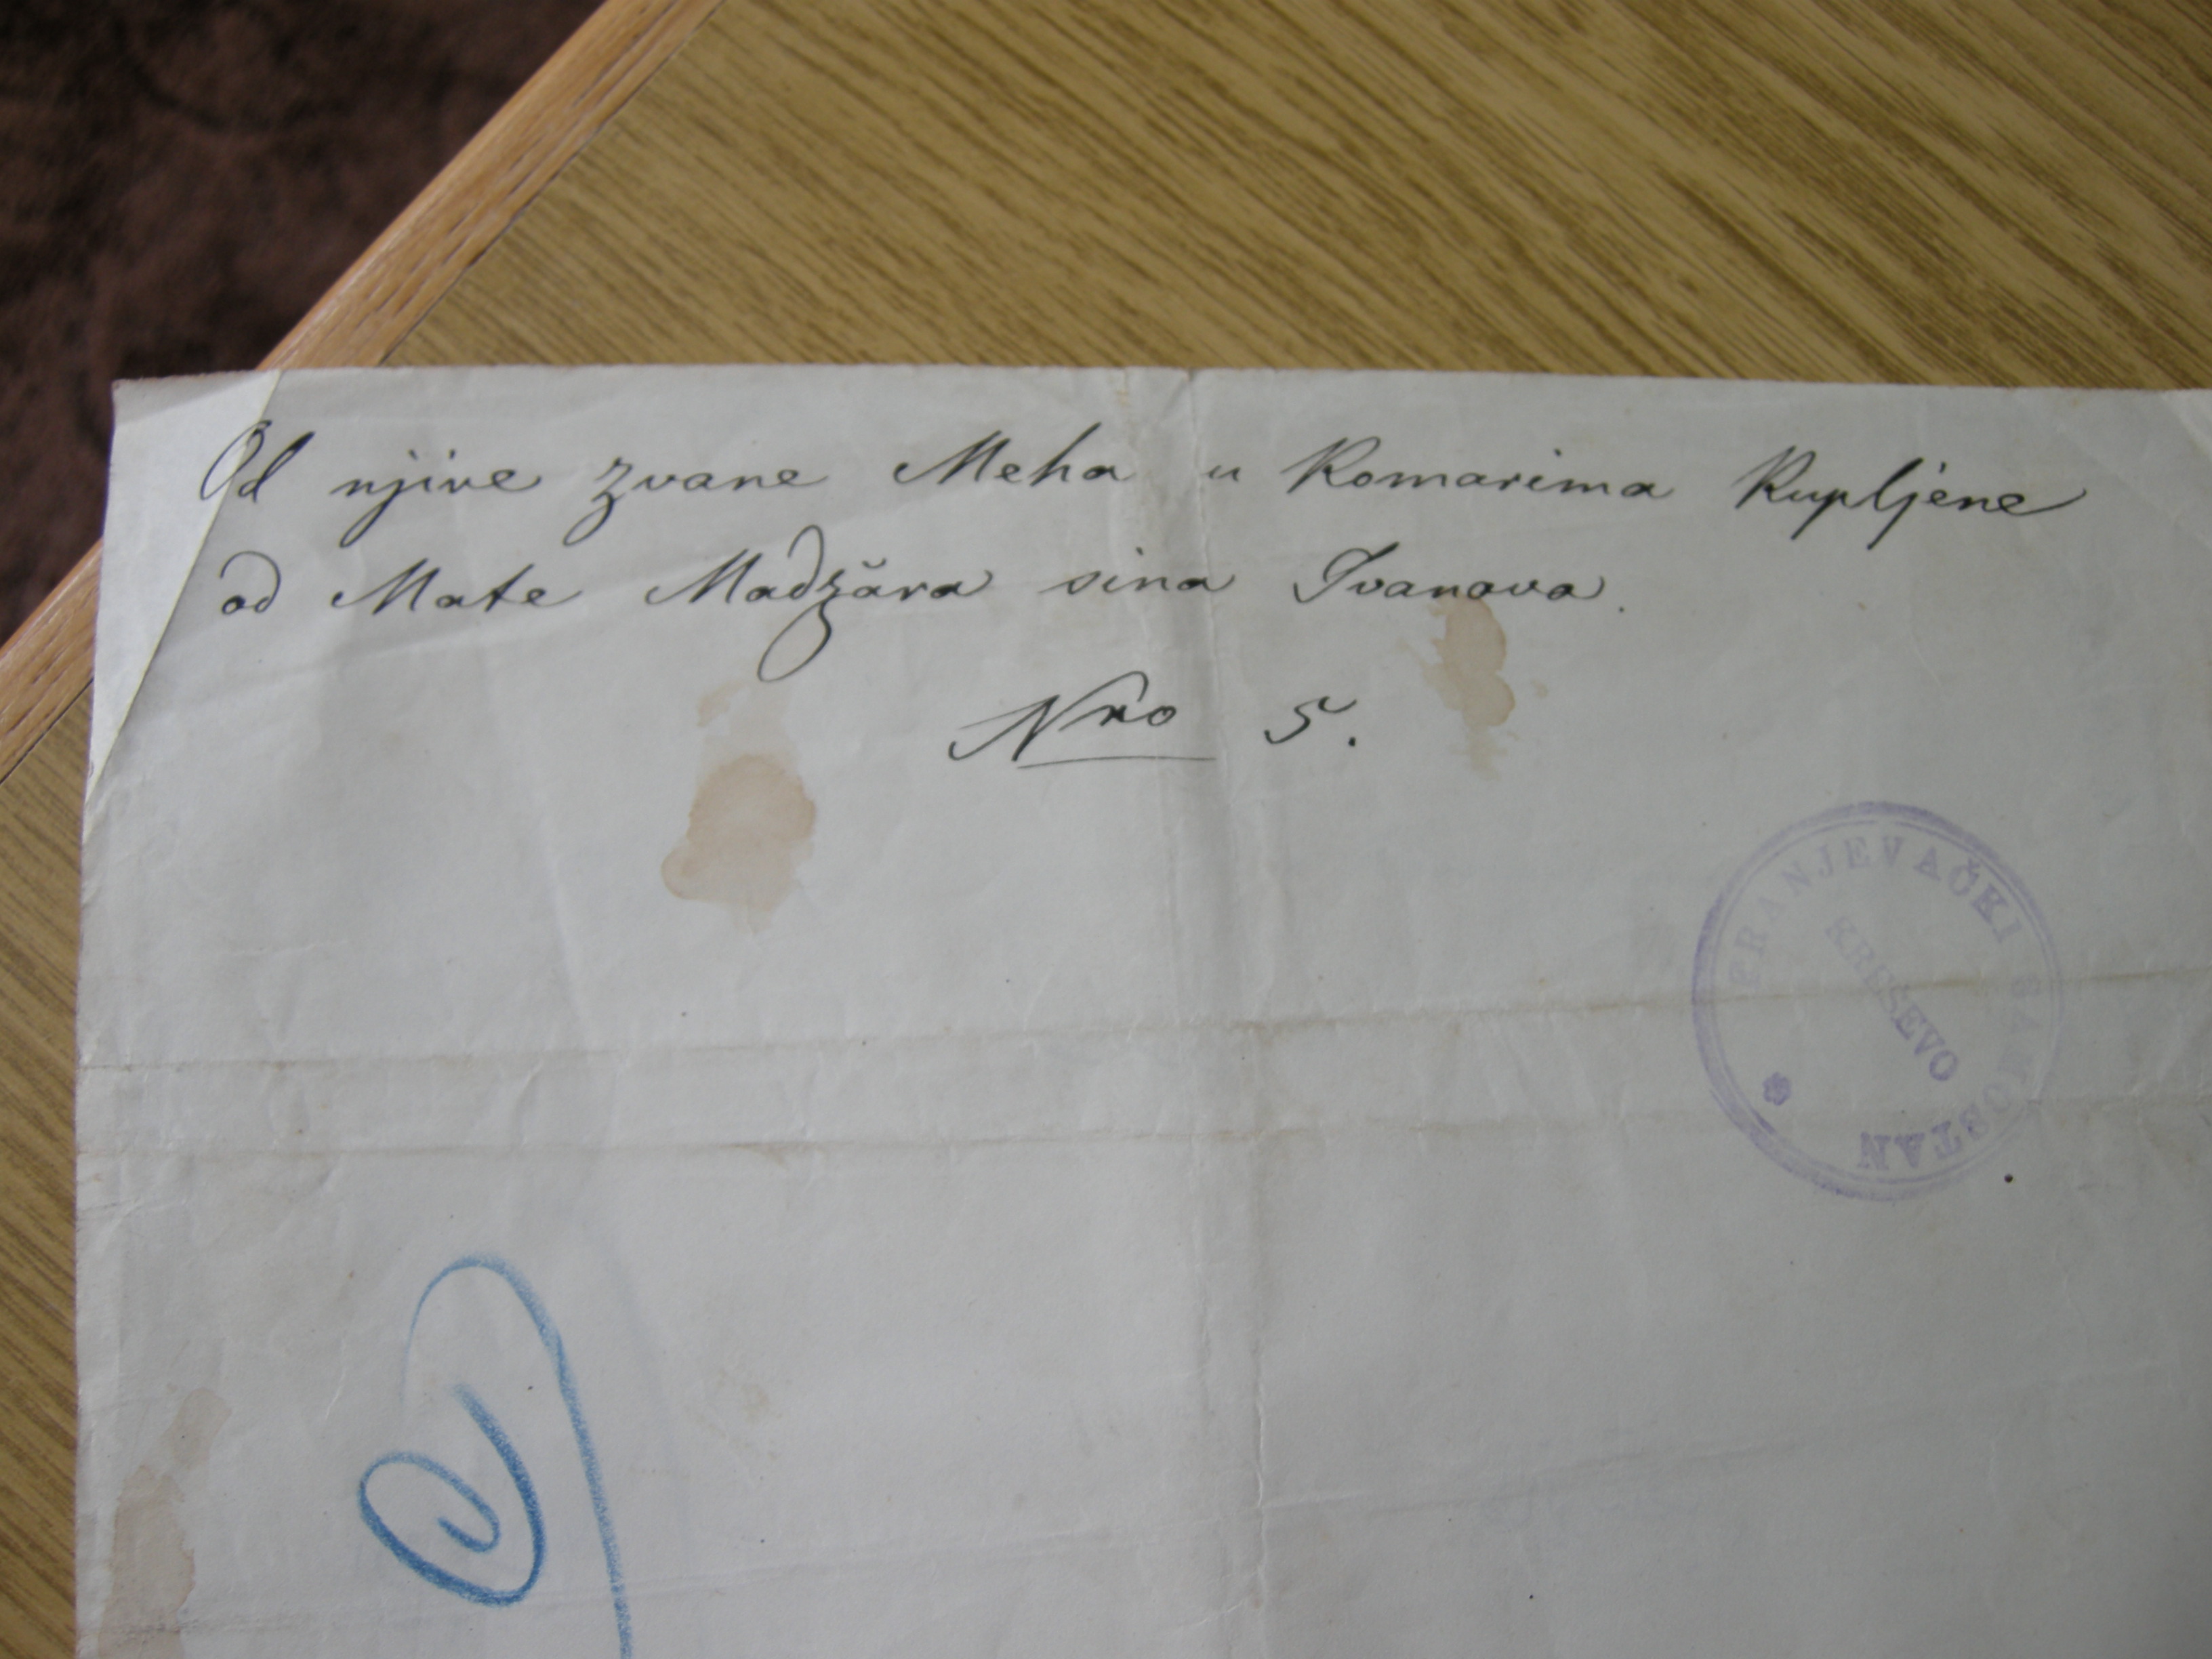 Od njive zvane Meha u Komarima Kupljene
od Mate Madžara sina Ivanova.
Nro 5.
FRANJEVAČKI SAMOSTAN
KREŠEVO